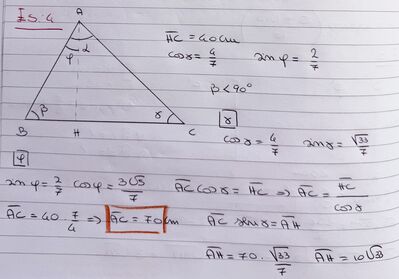 Es. 4
A
α
φ
β
γ
B
H
C
HC = 40 cm
cos γ = 4/7
sin φ = 2/7
β < 90°
γ
cos γ = 4/7 sin γ = √33/7
φ
sin φ = 2/7 cos φ = 3√5/7 AC cos γ = HC ⇒ AC = HC/cos γ
AC = 40 · 7/4 ⇒ AC = 70 cm AC sin γ = AH
AH = 70 · √33/7 AH = 10√33